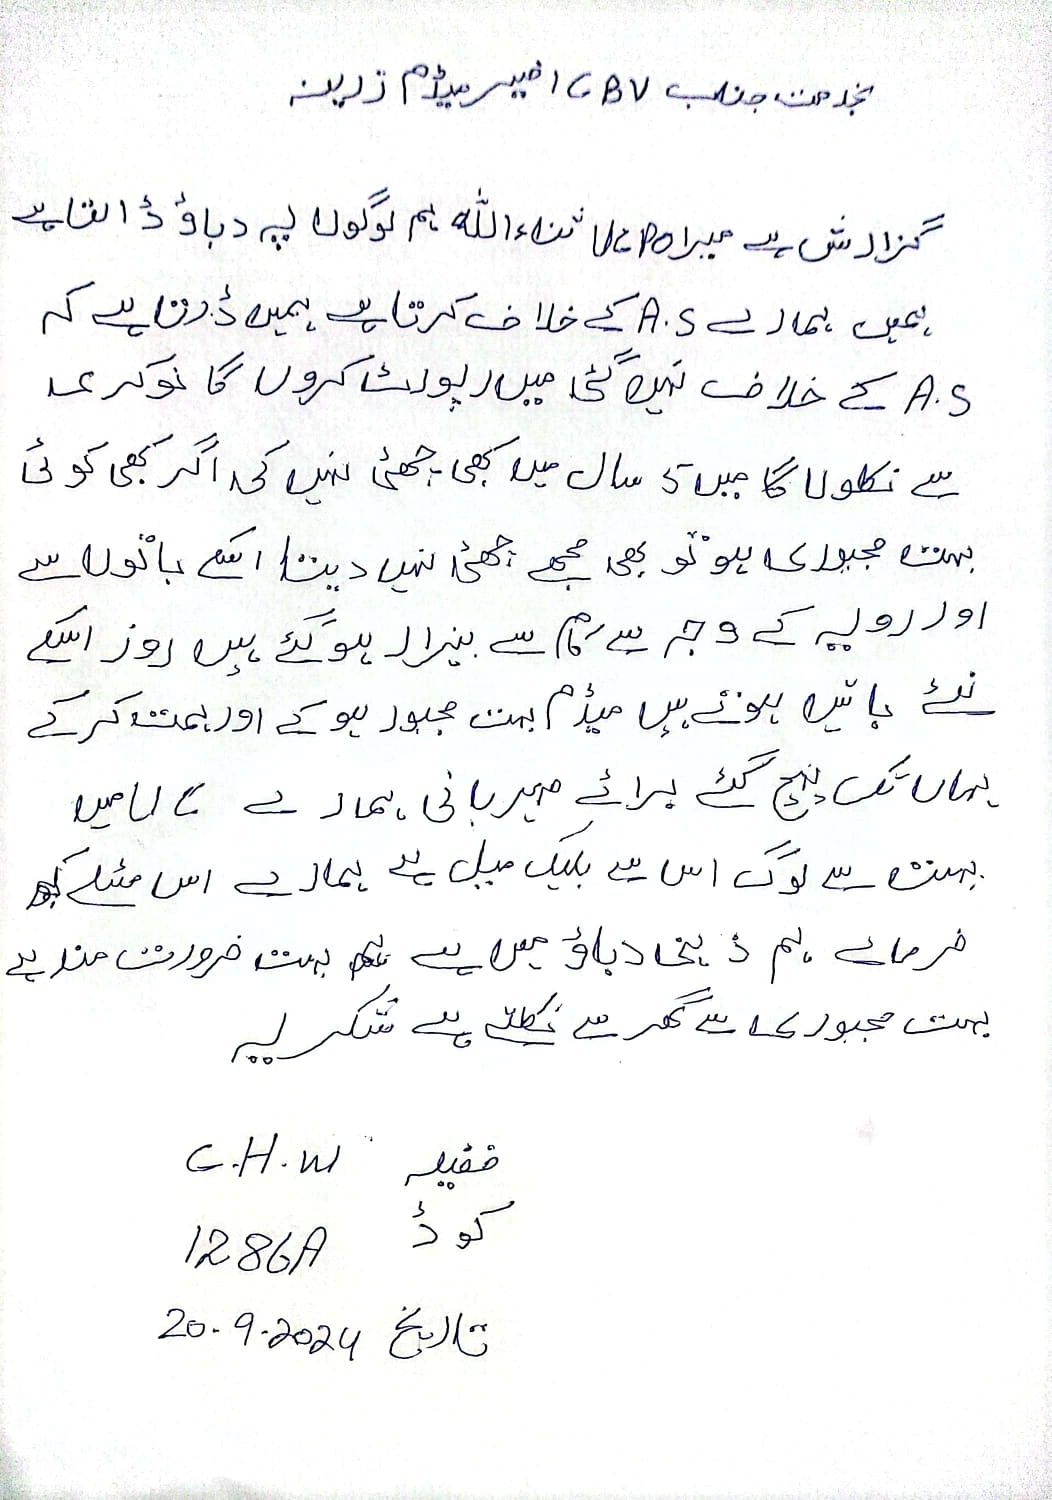 بخدمت جناب GBV افیسر میڈم زرینہ
گزارش ہے میرا UCPO ثناءاللہ ہم لوگوں پہ دباؤ ڈالتا ہے
ہمیں ہمارے A.S کے خلاف کرتا ہے ہمیں ڈرتا ہے کہ
A.S کے خلاف نہیں گئی میں رپورٹ کروں گا نوکری
سے نکلوں گا میں 5 سال میں کبھی چھٹی نہیں کی اگر کبھی کوئی
بہت مجبوری ہو تو بھی مجھے چھٹی نہیں دیتا اسکے باتوں سے
اور رویہ کے وجہ سے کام سے بیزار ہو گئے ہیں روز اسکے
نئے باتیں ہوتے ہیں میڈم بہت مجبور ہو کے اور ہمت کر کے
یہاں تک پہنچ گئے برائے مہربانی ہمارے UC میں
بہت سے لوگ اس سے بلیک میل ہے ہمارے اس مسئلے کچھ
فرمائے ہم ذہنی دباؤ میں ہے ہم بہت ضرورت مند ہے
بہت مجبوری سے گھر سے نکلتے ہے شکریہ
C.H.W
کوڈ 1286A
تاریخ 20.9.2024